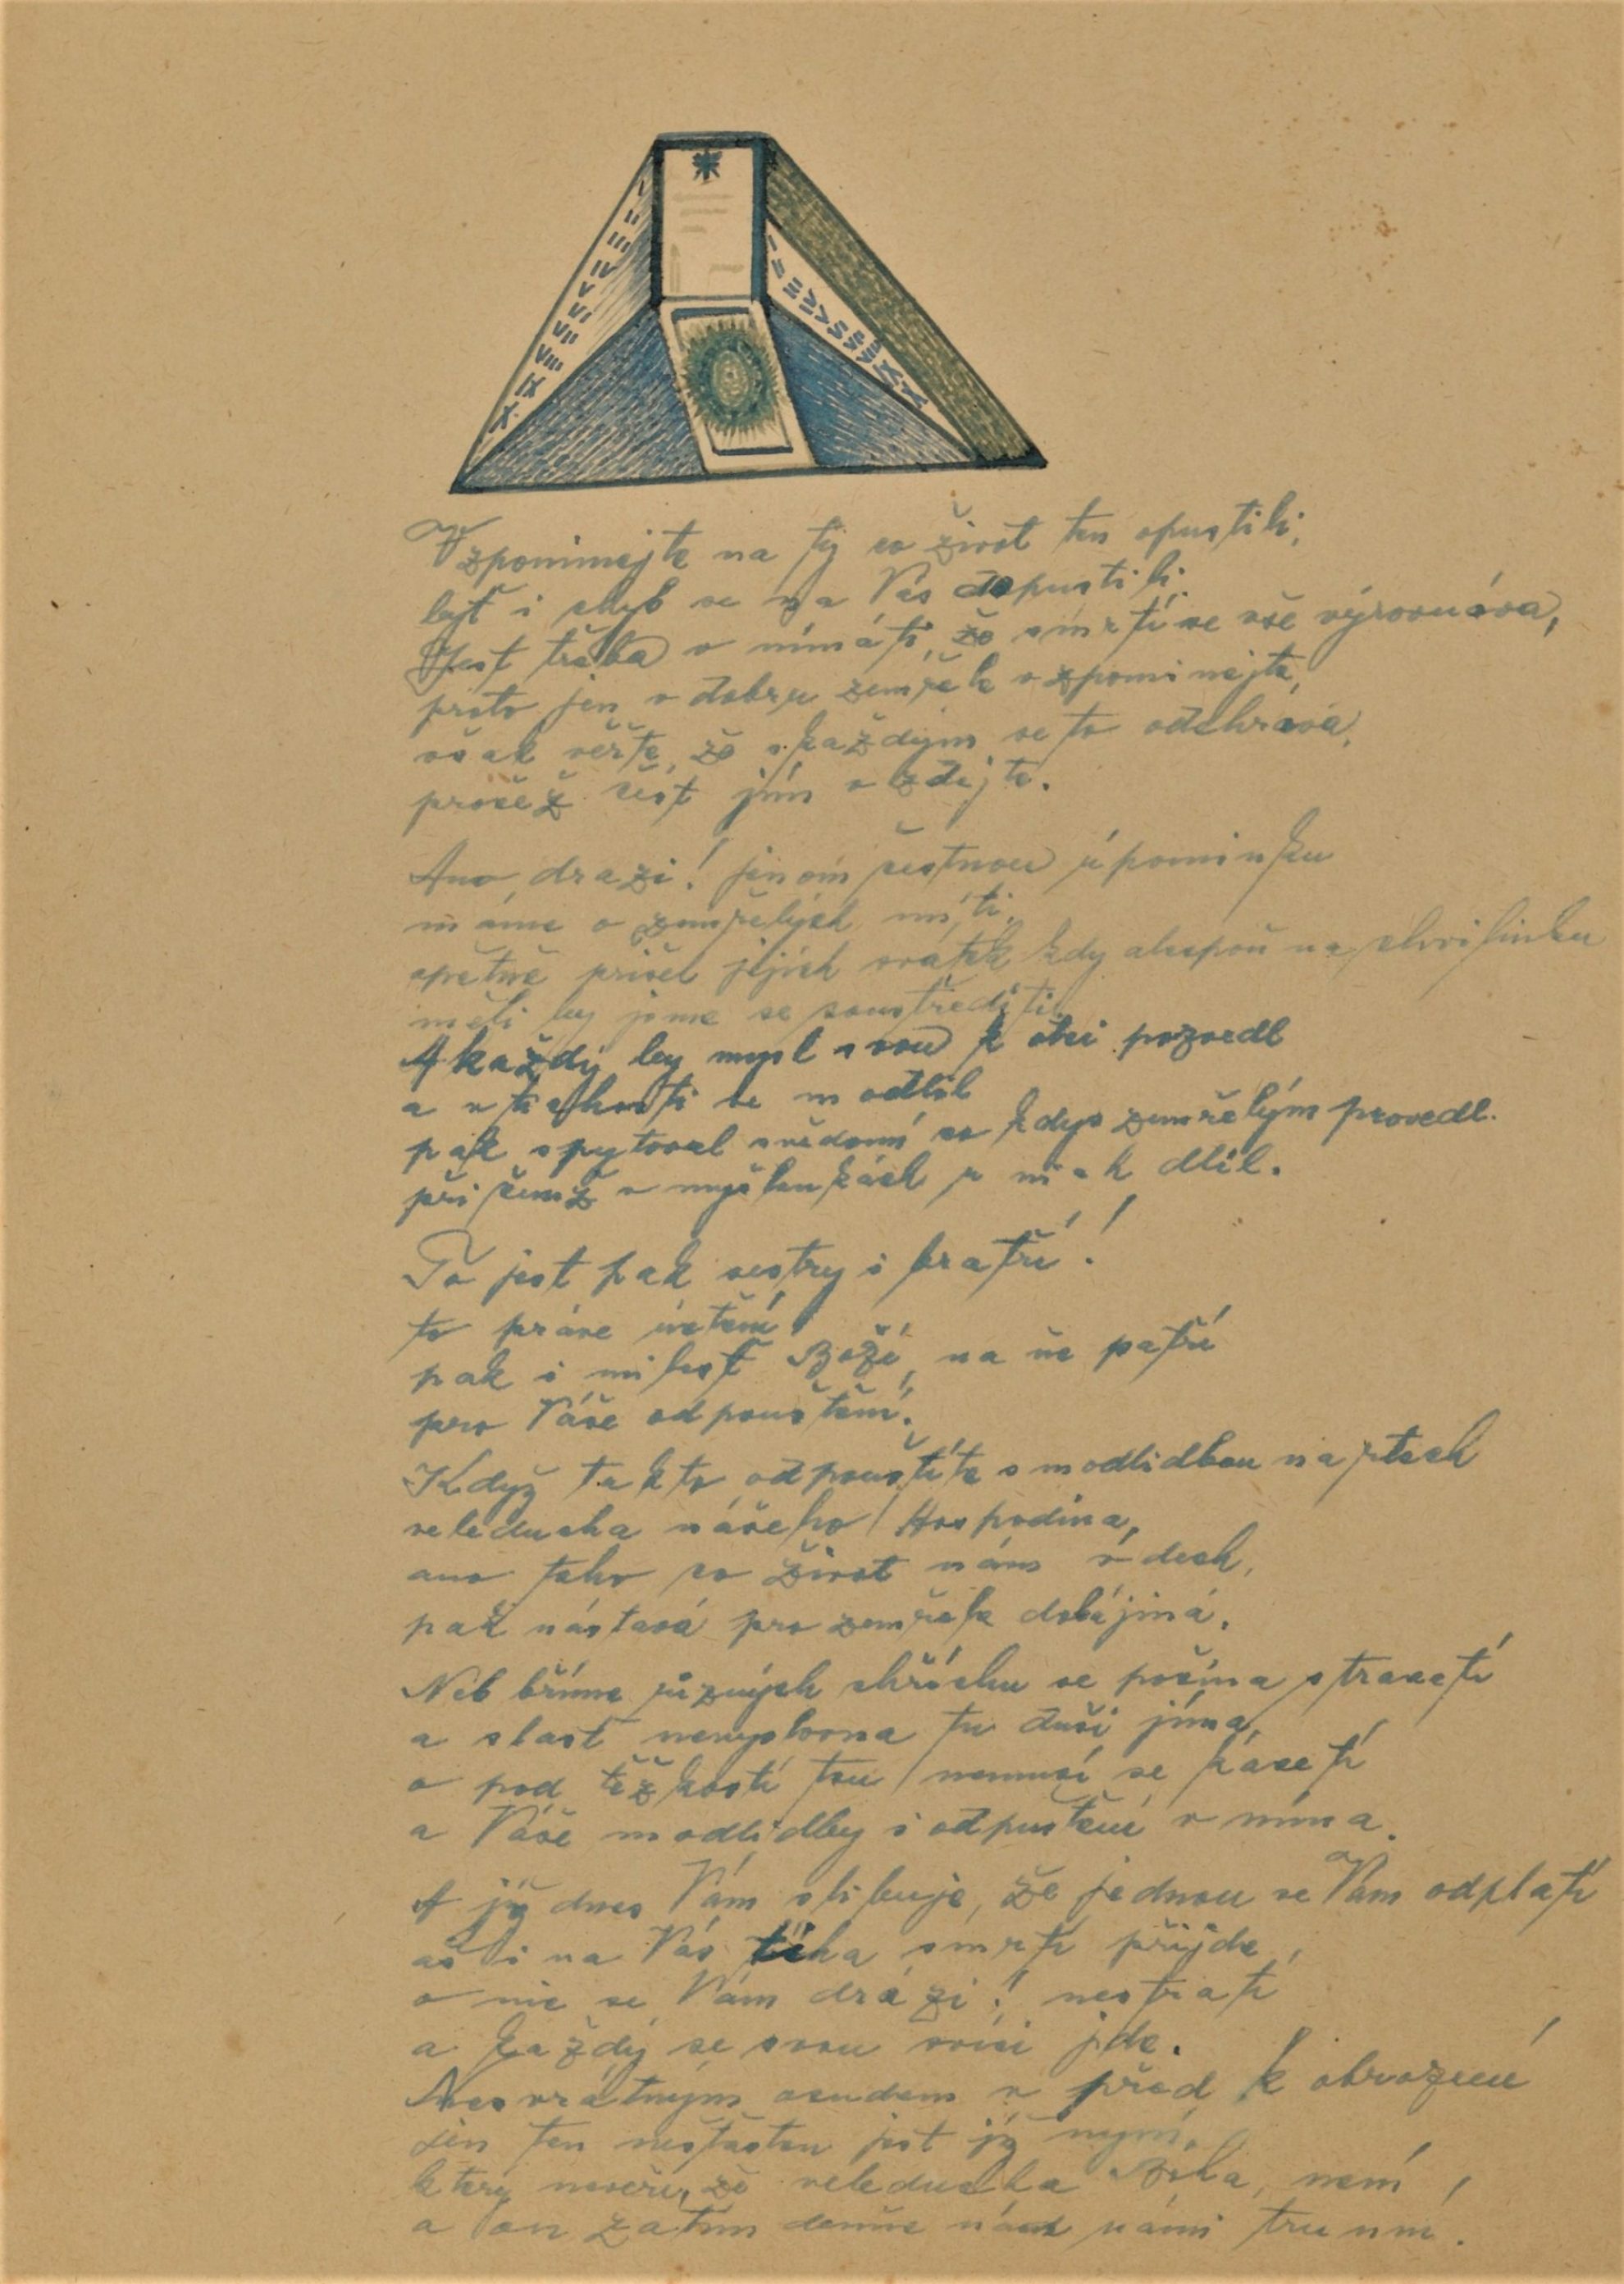 Vzpomínejte na ty co život ten opustili,
byť i chyb se na Vás dopustili.
Jest třeba v nímáti, že smrtí se vše výrovnává,
proto jen v dobru zemřelé vzpominejte,
však věřte, že s každým se to odehrává,
pročež čest jím vzdejte.
Ano, drazí! jenom čestnou úpominku
máme o zemřelých míti,
opětně přišel jejích svátek kdy alespoň na chvilinku
měli by jsme se soustředíti.
A každý by mysl svou k otci pozvedl
a v tichosti se modlil
pak spytoval svědomí co kdys zemřelým provedl.
při čemž v myšlenkách u nich dlil.
To jest pak sestry i bratří!
to práve úctění,
pak i milost Boží, na ně patří
pro Váše odpouštění.
Když takto odpouštíte s modlidbou na rtech
veleducha nášeho Hospodina,
ano toho co život nám v dech,
pak nástavá pro zemřelé doba jiná.
Neb břímě různých hříchu se počíná straceti
a slast nemyslovna tu duši jímá,
pod těžkostí tou nemusí se káceti
a Váše modlidby i odpuštění v nímá.
A já dnes Vám slibuje, že jednou se Vám odplatí
až i na Vás tíha smrti přijde,
nic se Vám drází! nestratí
a každý se svou svící jde.
Nesvrátným osudem v před k obrození
jen ten nešťasten jest již nyní,
který nevěří, že veleducha Boha, není,
a on zatím denně nad námi truní.